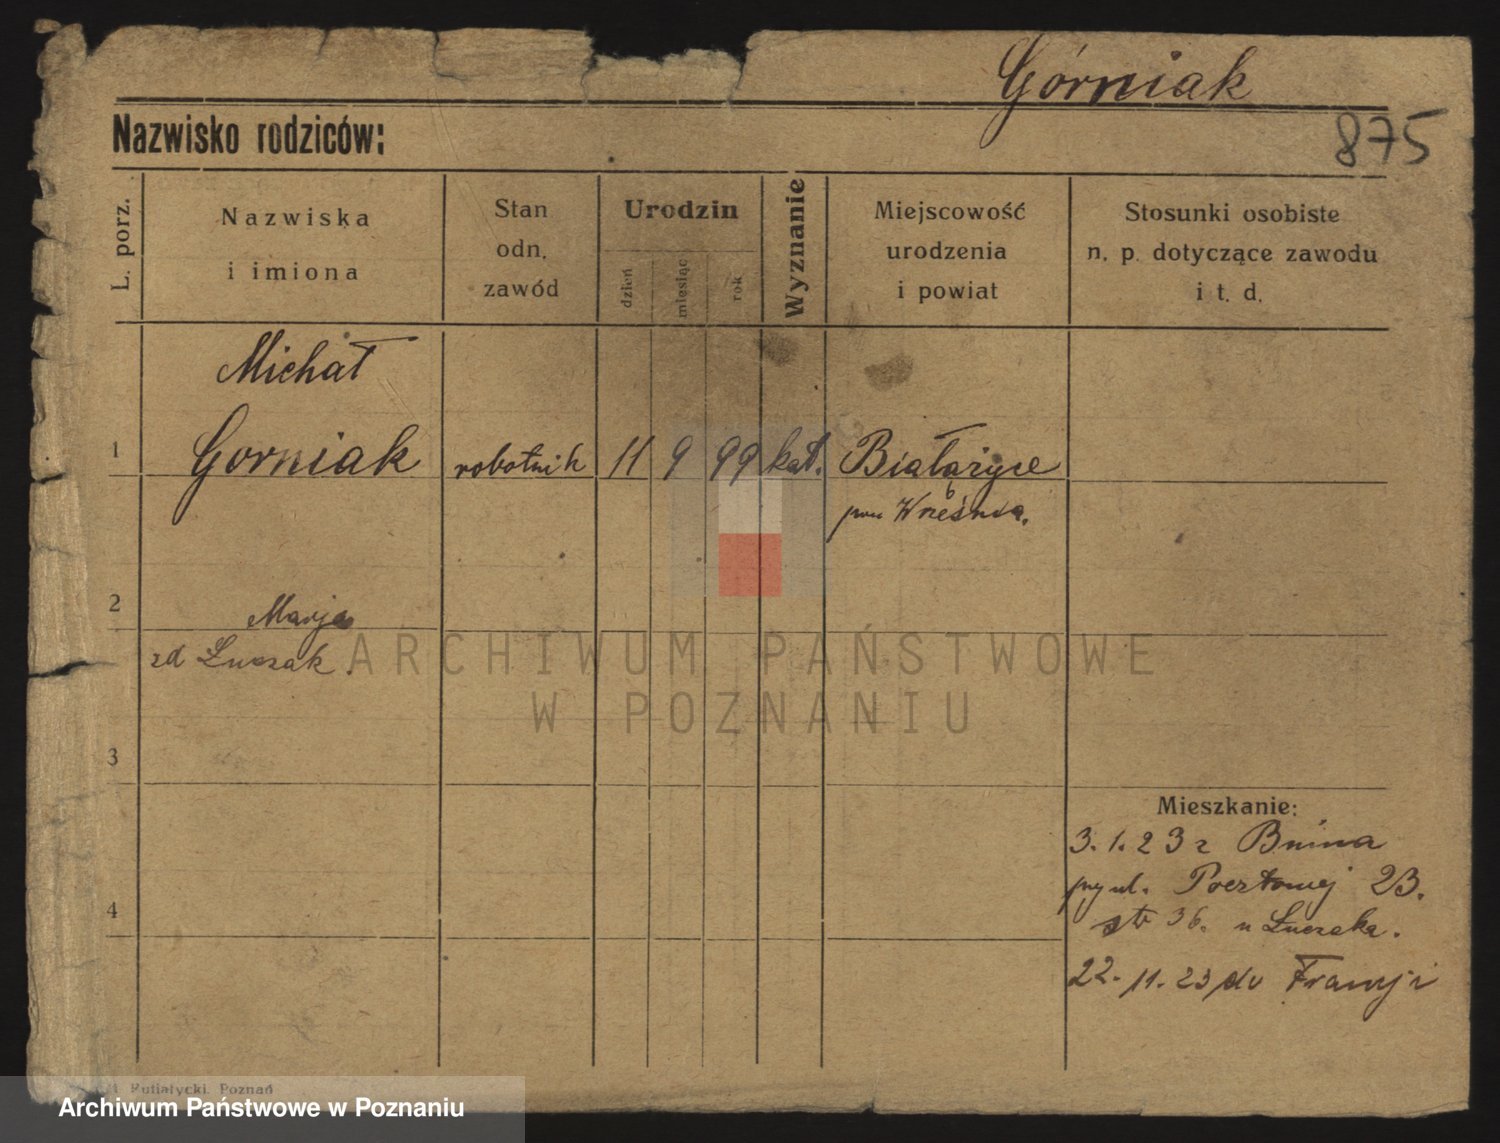 Górniak
875
Nazwisko rodziców:
L. porz.
Nazwiska
i imiona
Stan
odn.
zawód
Urodzin
dzień
miesiąc
rok
Wyznanie
Miejscowość
urodzenia
i powiat
Stosunki osobiste
n. p. dotyczące zawodu
i t. d.
Michał
1 Gorniak robotnik 11 9 99 kat. Białążyce
pow Września.
2 Marja
zd Łuczak.
ARCHIWUM PAŃSTWOWE
W POZNANIU
3
Mieszkanie:
3. 1. 23 z Bnina
przy ul. Pocztowej 23.
str 36. u Łuczaka.
4
22. 11. 23 do Francji
Putiatycki, Poznań
Archiwum Państwowe w Poznaniu